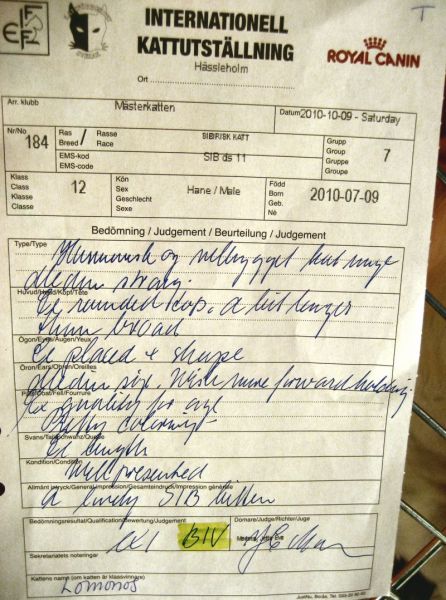 T
FIFe
INTERNATIONELL
KATTUTSTÄLLNING
ROYAL CANIN
Hässleholm
Ort
Arr. klubb Mästerkatten Datum 2010-10-09 - Saturday
Nr/No 184 Ras Breed / Rasse Race SIBIRISK KATT Grupp Group Gruppe Groupe 7
EMS-kod EMS-code SIB ds 11
Klass Class Klasse Classe 12 Kön Sex Geschlecht Sexe Hane / Male Född Born Geb. Né 2010-07-09
Bedömning / Judgement / Beurteilung / Judgement
Type/Type
og but
medium strong.
Huvud/Head/Kopf/Tête
Ex rounded top. a bit longer
than broad
Ögon/Eyes/Augen/Yeux
Ex placed + shape
Öron/Ears/Ohren/Oreilles
medium size. Wish more forward holding.
Päls/Coat/Fell/Fourrure
Ex quality for age
Pretty coloring
Svans/Tail/Schwanz/Queue
Ex length
Kondition/Condition
Well presented
Allmänt intryck/General impression/Gesamteindruck/Impression générale
a lovely SIB kitten
Bedömningsresultat/Qualification/Bewertung/Judgement Domare/Judge/Richter/Juge
EX1 BIV
Sekretariatets noteringar
Kattens namn (om katten är klassvinnare)
Lomonos